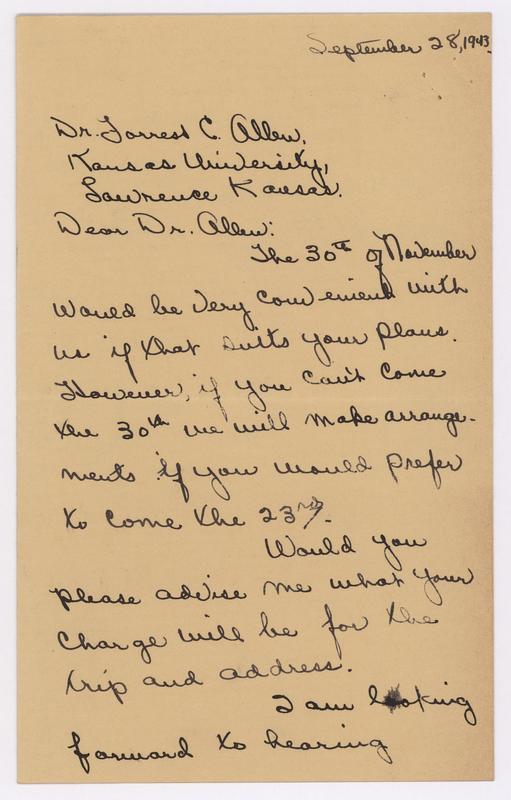 September 28, 1943.
Dr. Forrest C. Allen,
Kansas University,
Lawrence Kansas.
Dear Dr. Allen:
The 30th of November
would be very convenient with
us if that suits your plans.
However, if you can't come
the 30th we will make arrange-
ments if you would prefer
to come the 23rd.
Would you
please advise me what your
charge will be for the
trip and address.
I am looking
forward to hearing